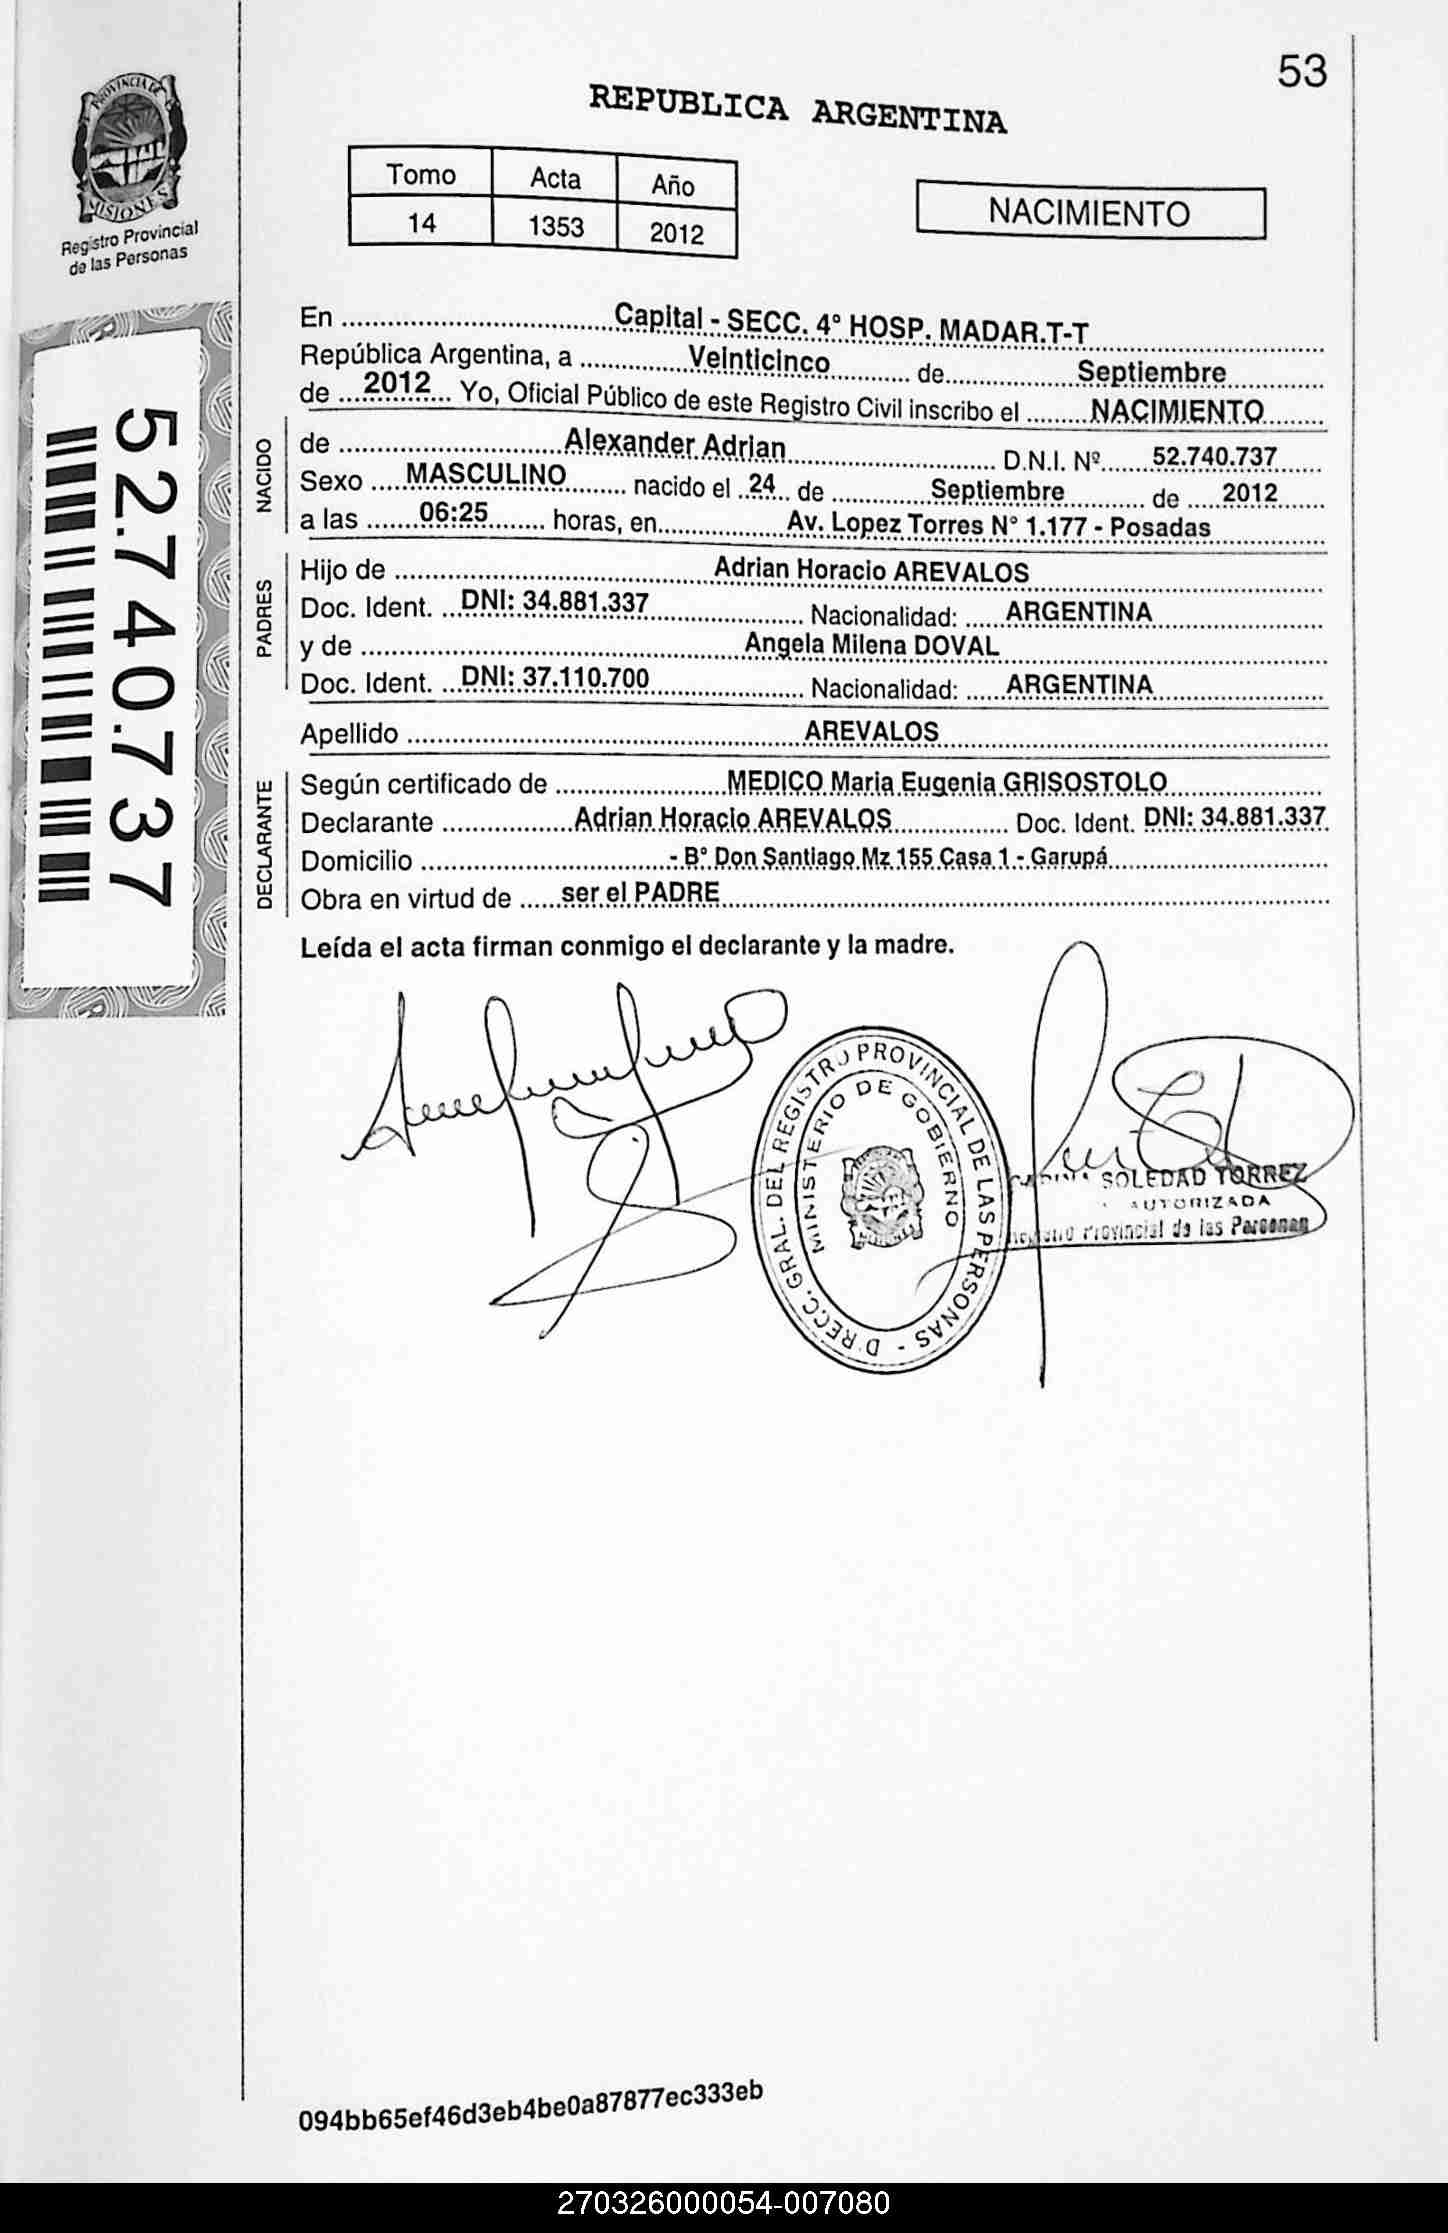 53
REPUBLICA ARGENTINA
PROVINCIA DE
MISIONES
Registro Provincial
de las Personas
Tomo Acta Año
14 1353 2012
NACIMIENTO
52.740.737
En Capital - SECC. 4° HOSP. MADAR.T-T
República Argentina, a Veinticinco de Septiembre
de 2012 Yo, Oficial Público de este Registro Civil inscribo el NACIMIENTO
NACIDO
de Alexander Adrian D.N.I. Nº 52.740.737
Sexo MASCULINO nacido el 24 de Septiembre de 2012
a las 06:25 horas, en Av. Lopez Torres N° 1.177 - Posadas
PADRES
Hijo de Adrian Horacio AREVALOS
Doc. Ident. DNI: 34.881.337 Nacionalidad: ARGENTINA
y de Angela Milena DOVAL
Doc. Ident. DNI: 37.110.700 Nacionalidad: ARGENTINA
Apellido AREVALOS
DECLARANTE
Según certificado de MEDICO Maria Eugenia GRISOSTOLO
Declarante Adrian Horacio AREVALOS Doc. Ident. DNI: 34.881.337
Domicilio - B° Don Santiago Mz 155 Casa 1 - Garupá
Obra en virtud de ser el PADRE
Leída el acta firman conmigo el declarante y la madre.
DIRECC. GRAL. DEL REGISTRO PROVINCIAL DE LAS PERSONAS -
MINISTERIO DE GOBIERNO
SOLEDAD TORREZ
AUTORIZADA
Registro Provincial de las Personas
094bb65ef46d3eb4be0a87877ec333eb
270326000054-007080